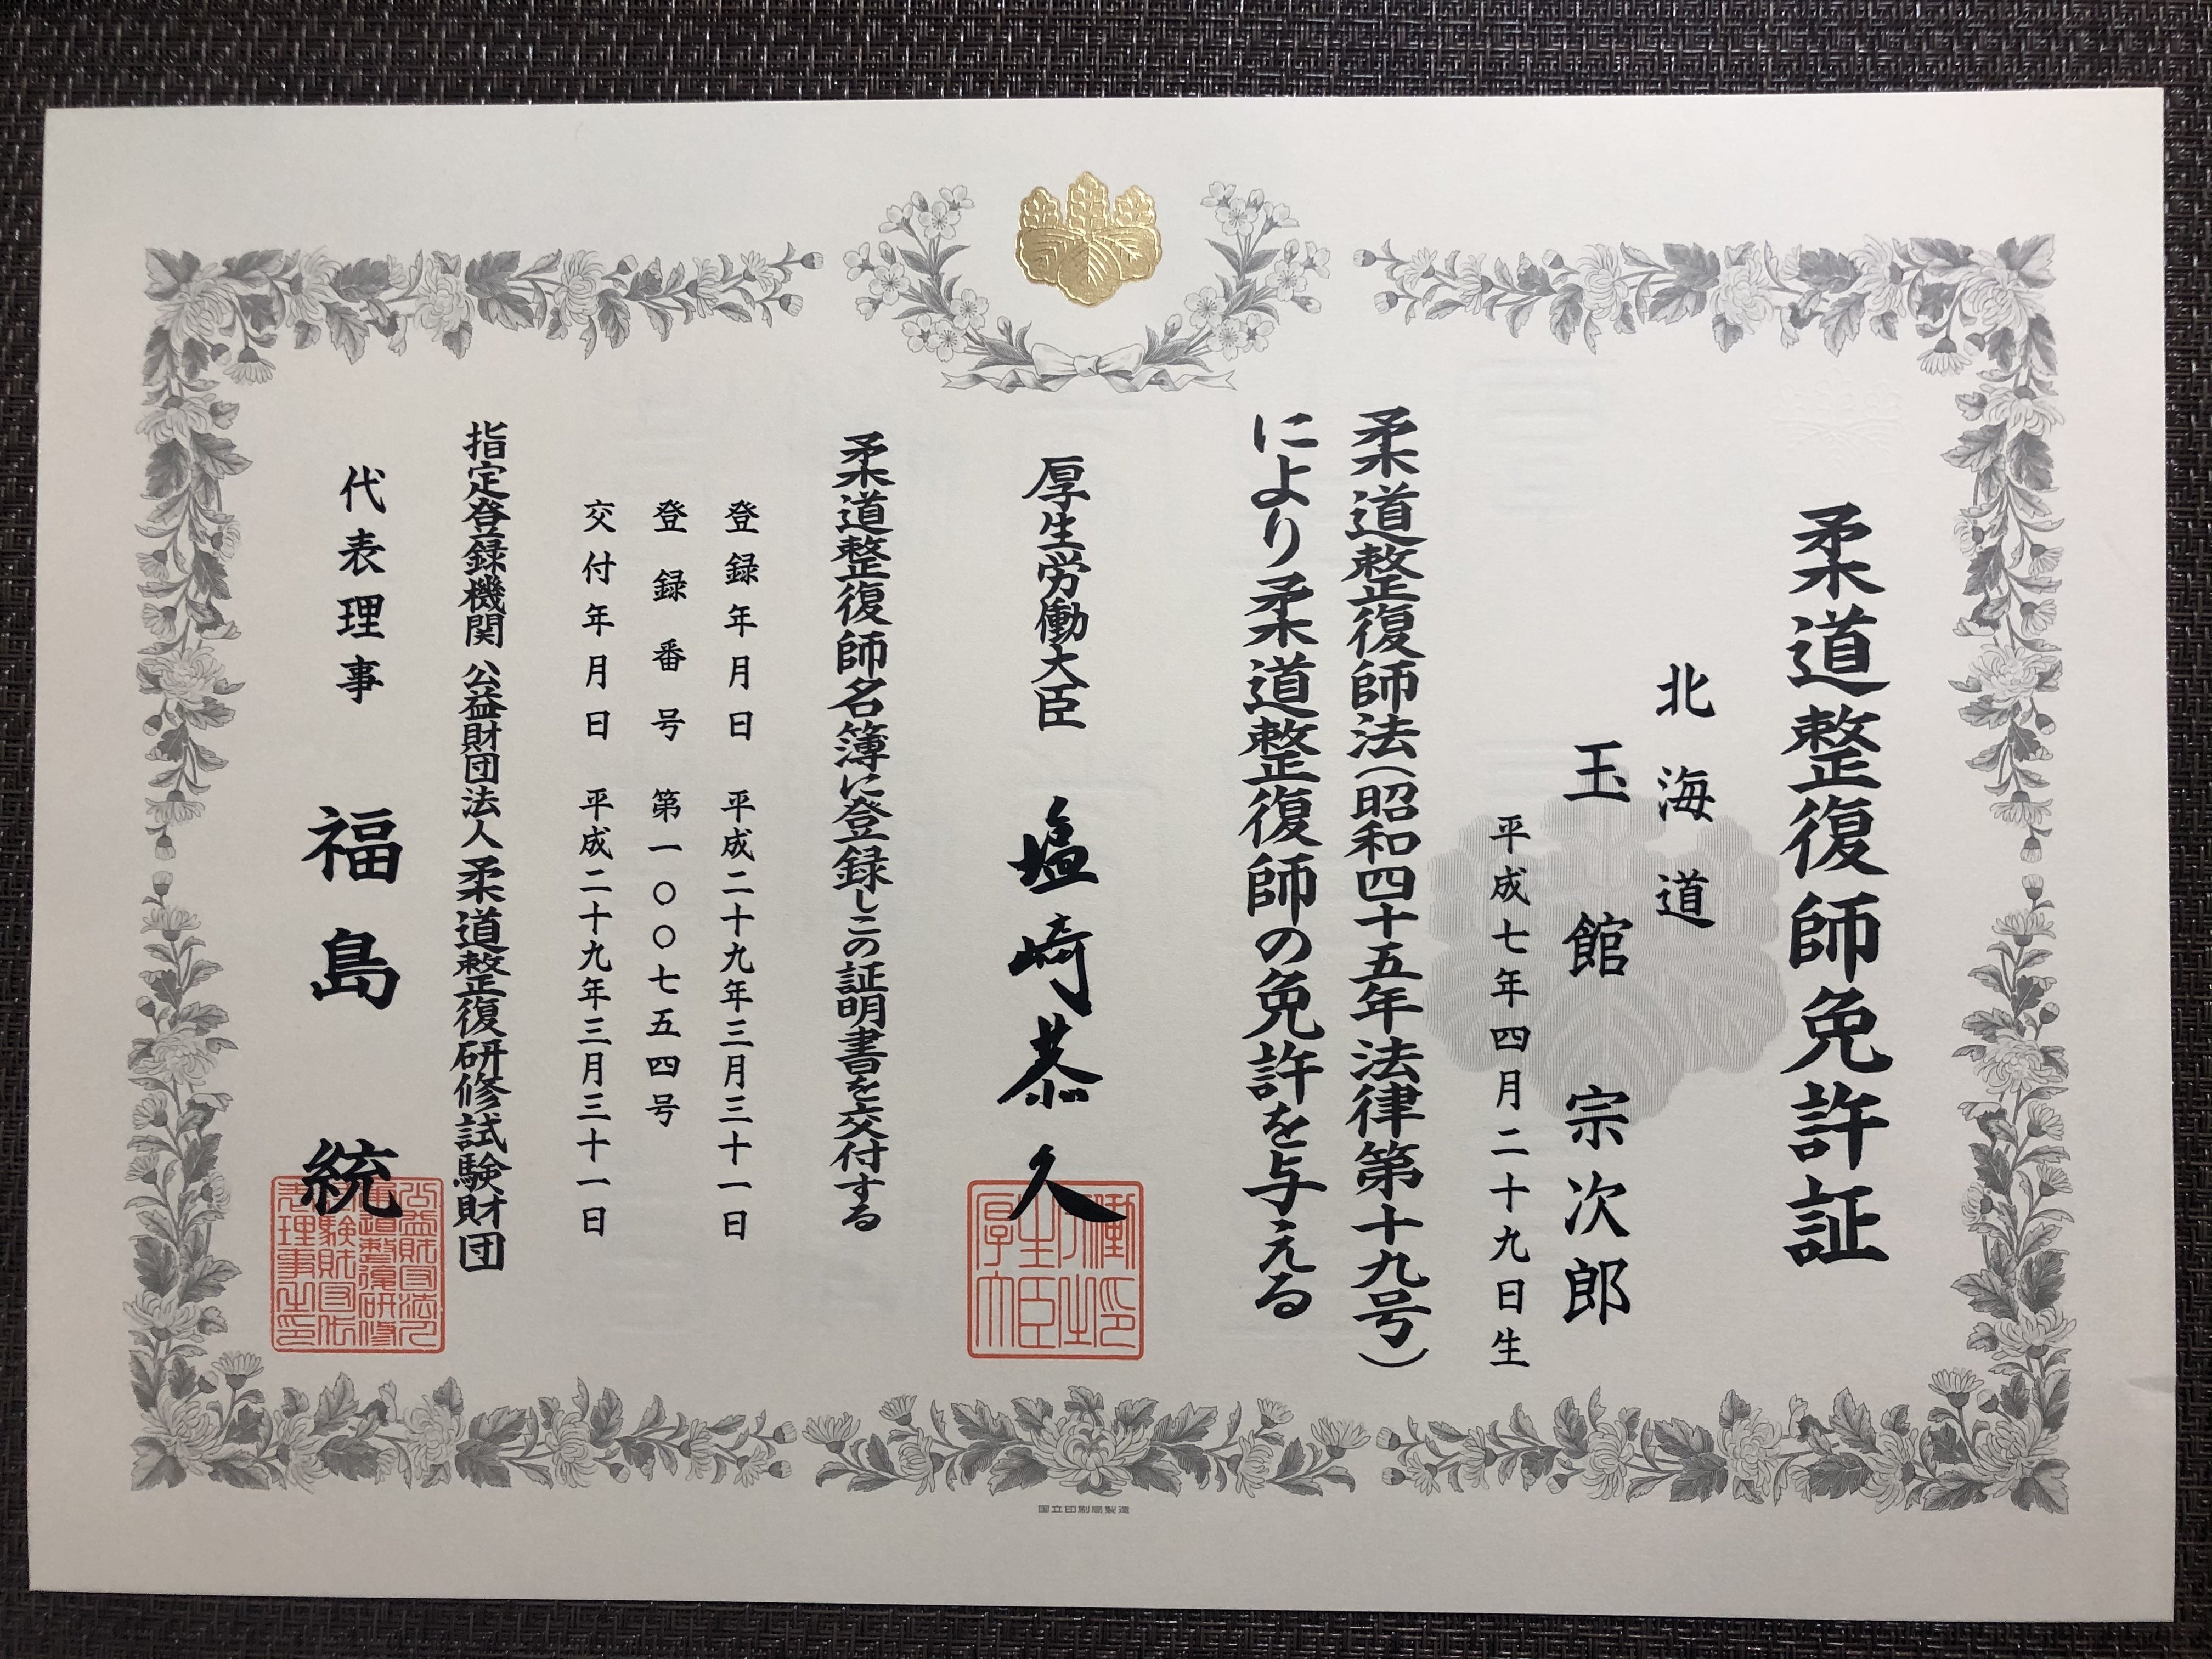 柔道整復師免許証
北海道
玉館 宗次郎
平成七年四月二十九日生
柔道整復師法(昭和四十五年法律第十九号)
により柔道整復師の免許を与える
厚生労働大臣 塩崎恭久
厚生労働大臣之印
柔道整復師名簿に登録しこの証明書を交付する
登録年月日 平成二十九年三月三十一日
登録番号 第一〇〇七五四号
交付年月日 平成二十九年三月三十一日
指定登録機関 公益財団法人 柔道整復研修試験財団
代表理事 福島 統
国立印刷局製造